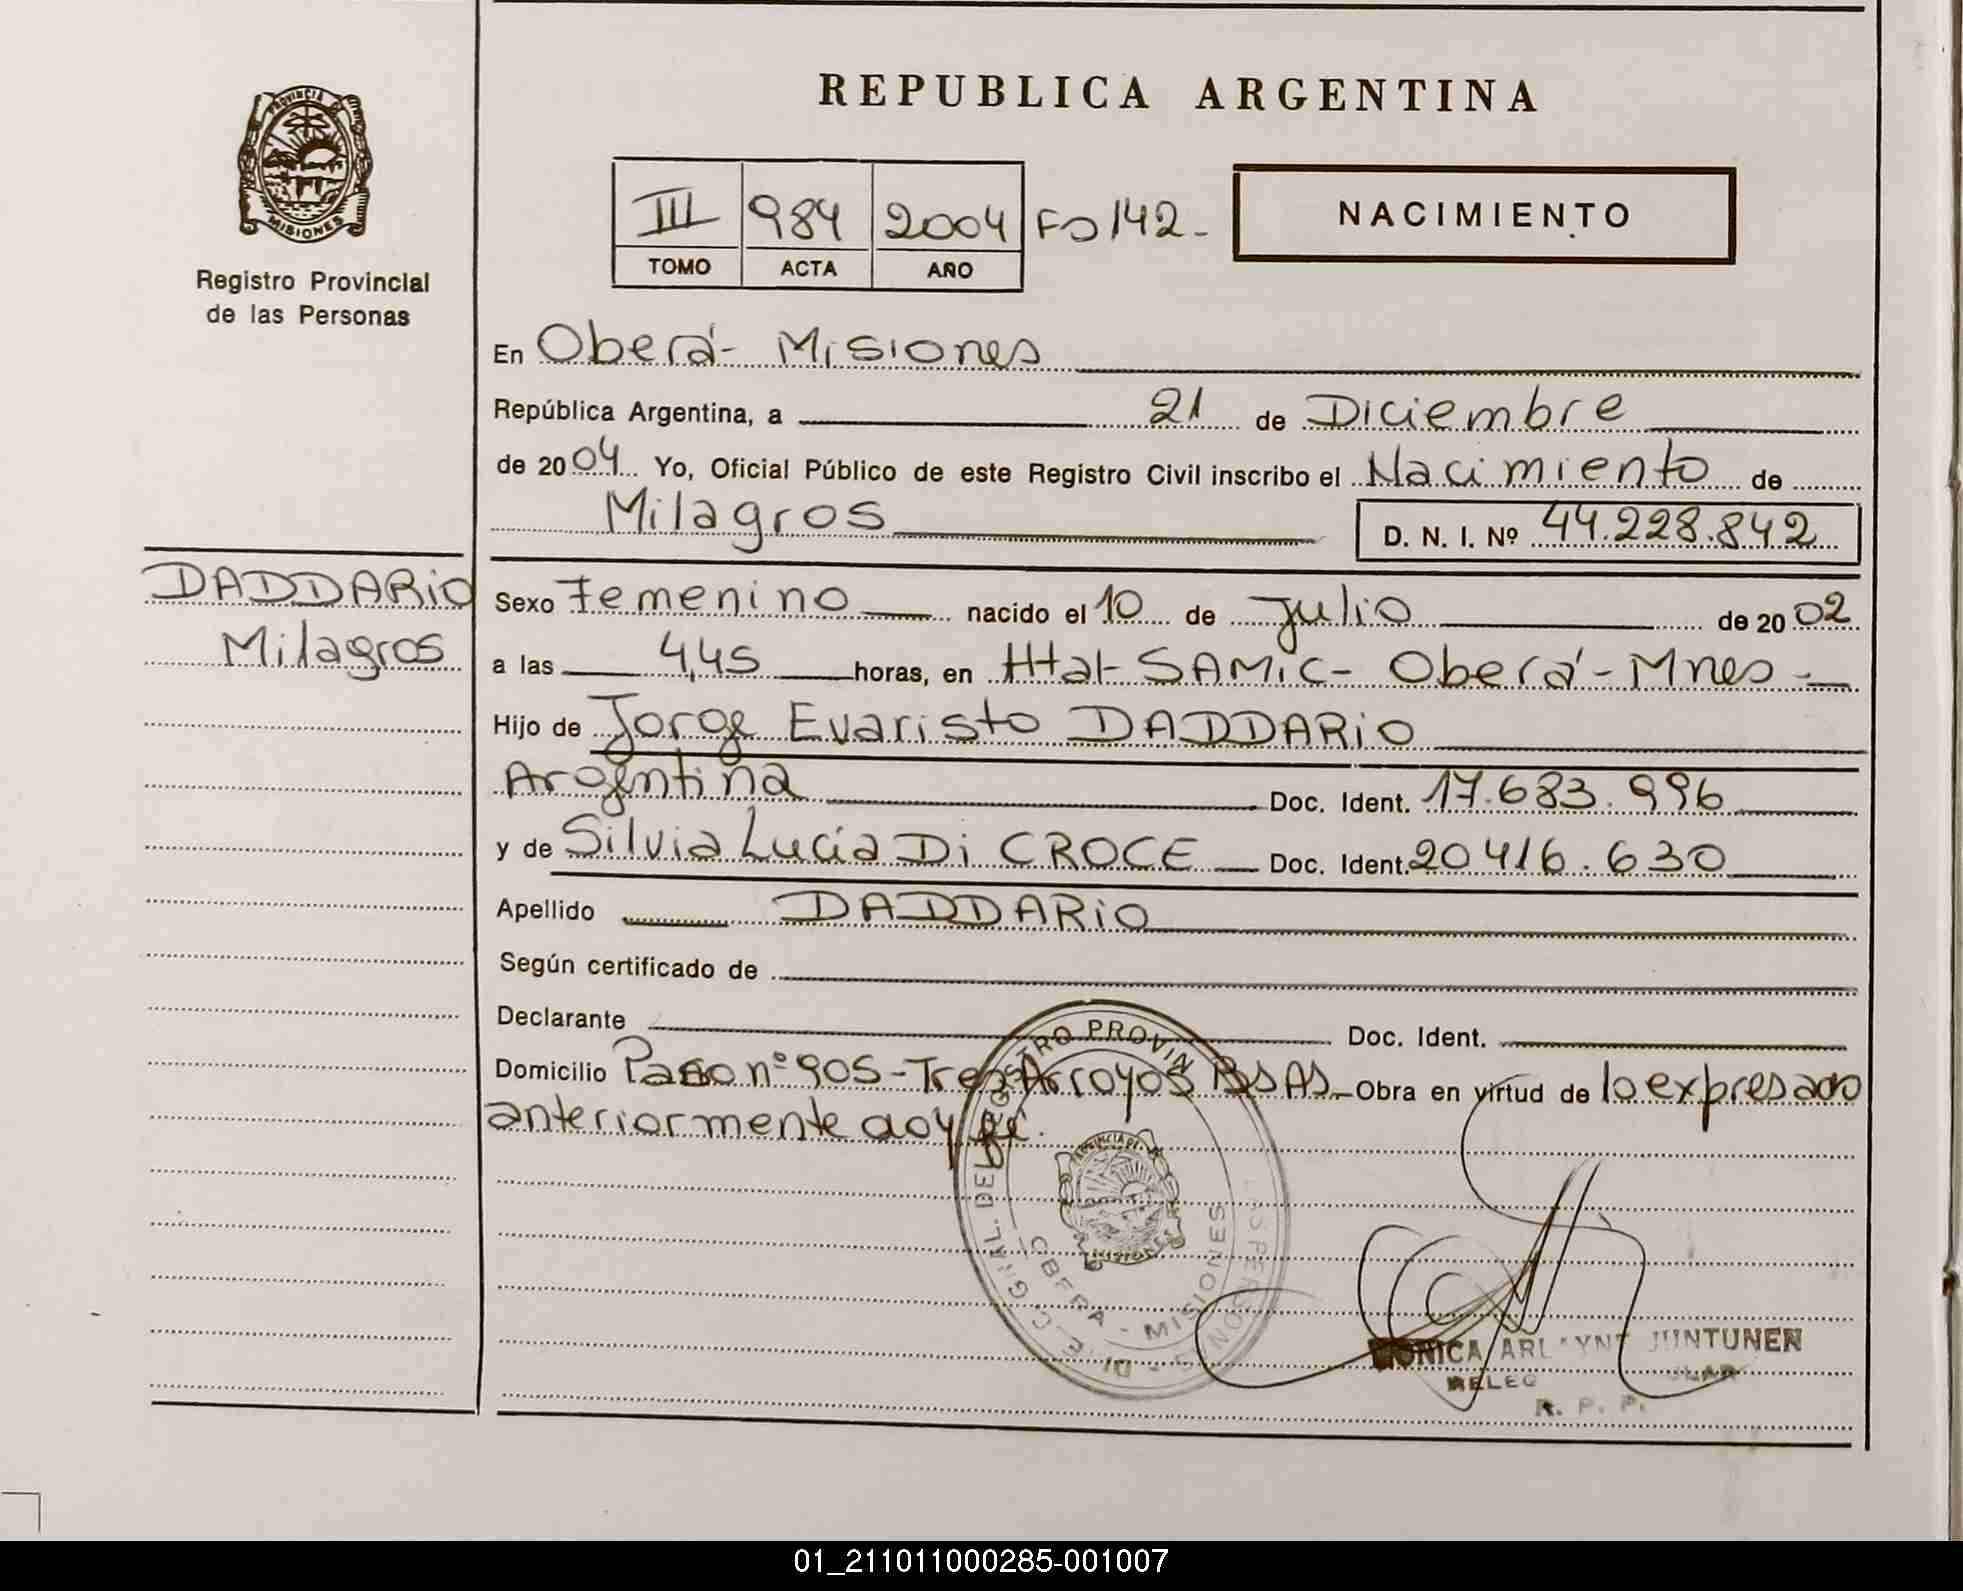 REPUBLICA ARGENTINA
PROVINCIA DE
MISIONES
Registro Provincial
de las Personas
III 984 2004 Fo 142-
TOMO ACTA AÑO
NACIMIENTO
En Oberá- Misiones
República Argentina, a 21 de Diciembre
de 2004 Yo, Oficial Público de este Registro Civil inscribo el Nacimiento de
Milagros D. N. I. Nº 44.228.842
DADDARIO
Milagros
Sexo Femenino nacido el 10 de Julio de 2002
a las 4,45 horas, en Htal SAMIC- Oberá-Mnes-
Hijo de Jorge Evaristo DADDARIO
Argentina Doc. Ident. 17.683.996
y de Silvia Lucía Di CROCE Doc. Ident. 20416.630
Apellido DADDARIO
Según certificado de
Declarante Doc. Ident.
Domicilio nº 905-Tres Arroyos BSAS- Obra en virtud de lo expresado
anteriormente doy fé.
MISIONES
JUNTUNEN
R. P. P.
01_211011000285-001007